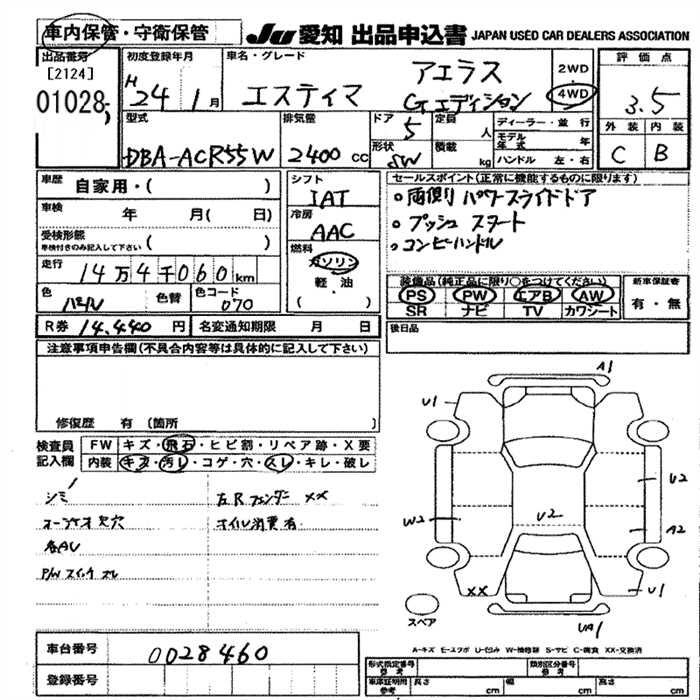 車内保管・守衛保管
JU 愛知 出品申込書 JAPAN USED CAR DEALERS ASSOCIATION
出品番号
[2124]
01028
初度登録年月
H 24 1月
車名・グレード
エスティマ
アエラス
Gエディション
2WD
4WD
評価点
3.5
外装 内装
C B
型式
DBA-ACR55W
排気量
2400 cc
ドア
5
形状
SW
定員
人
積載
kg
ディーラー・並行
モデル年式 年
ハンドル 左・右
車歴 自家用・( )
車検 年 月( 日)
受検形態
車検付きのみ記入して下さい ( )
走行 14万4千060km
色 パール 色替 色コード 070
シフト
IAT
冷房
AAC
燃料
ガソリン
軽・油
( )
セールスポイント(正常に機能するものに限ります)
・両側パワースライドドア
・プッシュスタート
・コンビハンドル
装備品(純正品に限り○をつけてください)
PS PW エアB AW
SR ナビ TV カワシート
新車保証書
有・無
R券 14,440円 名変通知期限 月 日
後日品
注意事項申告欄(不具合内容等は具体的に記入して下さい)
修復歴 有(箇所 )
検査員記入欄
FW キズ・飛石・ヒビ割・リペア跡・X要
内装 キズ・汚レ・コゲ・穴・スレ・キレ・破レ
シミ 左Rフェンダー XX
オーディオ欠穴 オイル消費有
各AU
P/Wスイッチスレ
A1
U1
U2
W2
U2
A2
XX
U1
UA1
スペア
A-キズ E-エクボ U-凹み W-補修跡 S-サビ C-腐食 XX-交換済
車台番号 0028460
登録番号
形式指定番号 参考
類別区分番号 参考
車庫証明用 参考 長さ cm 幅 cm 高さ cm